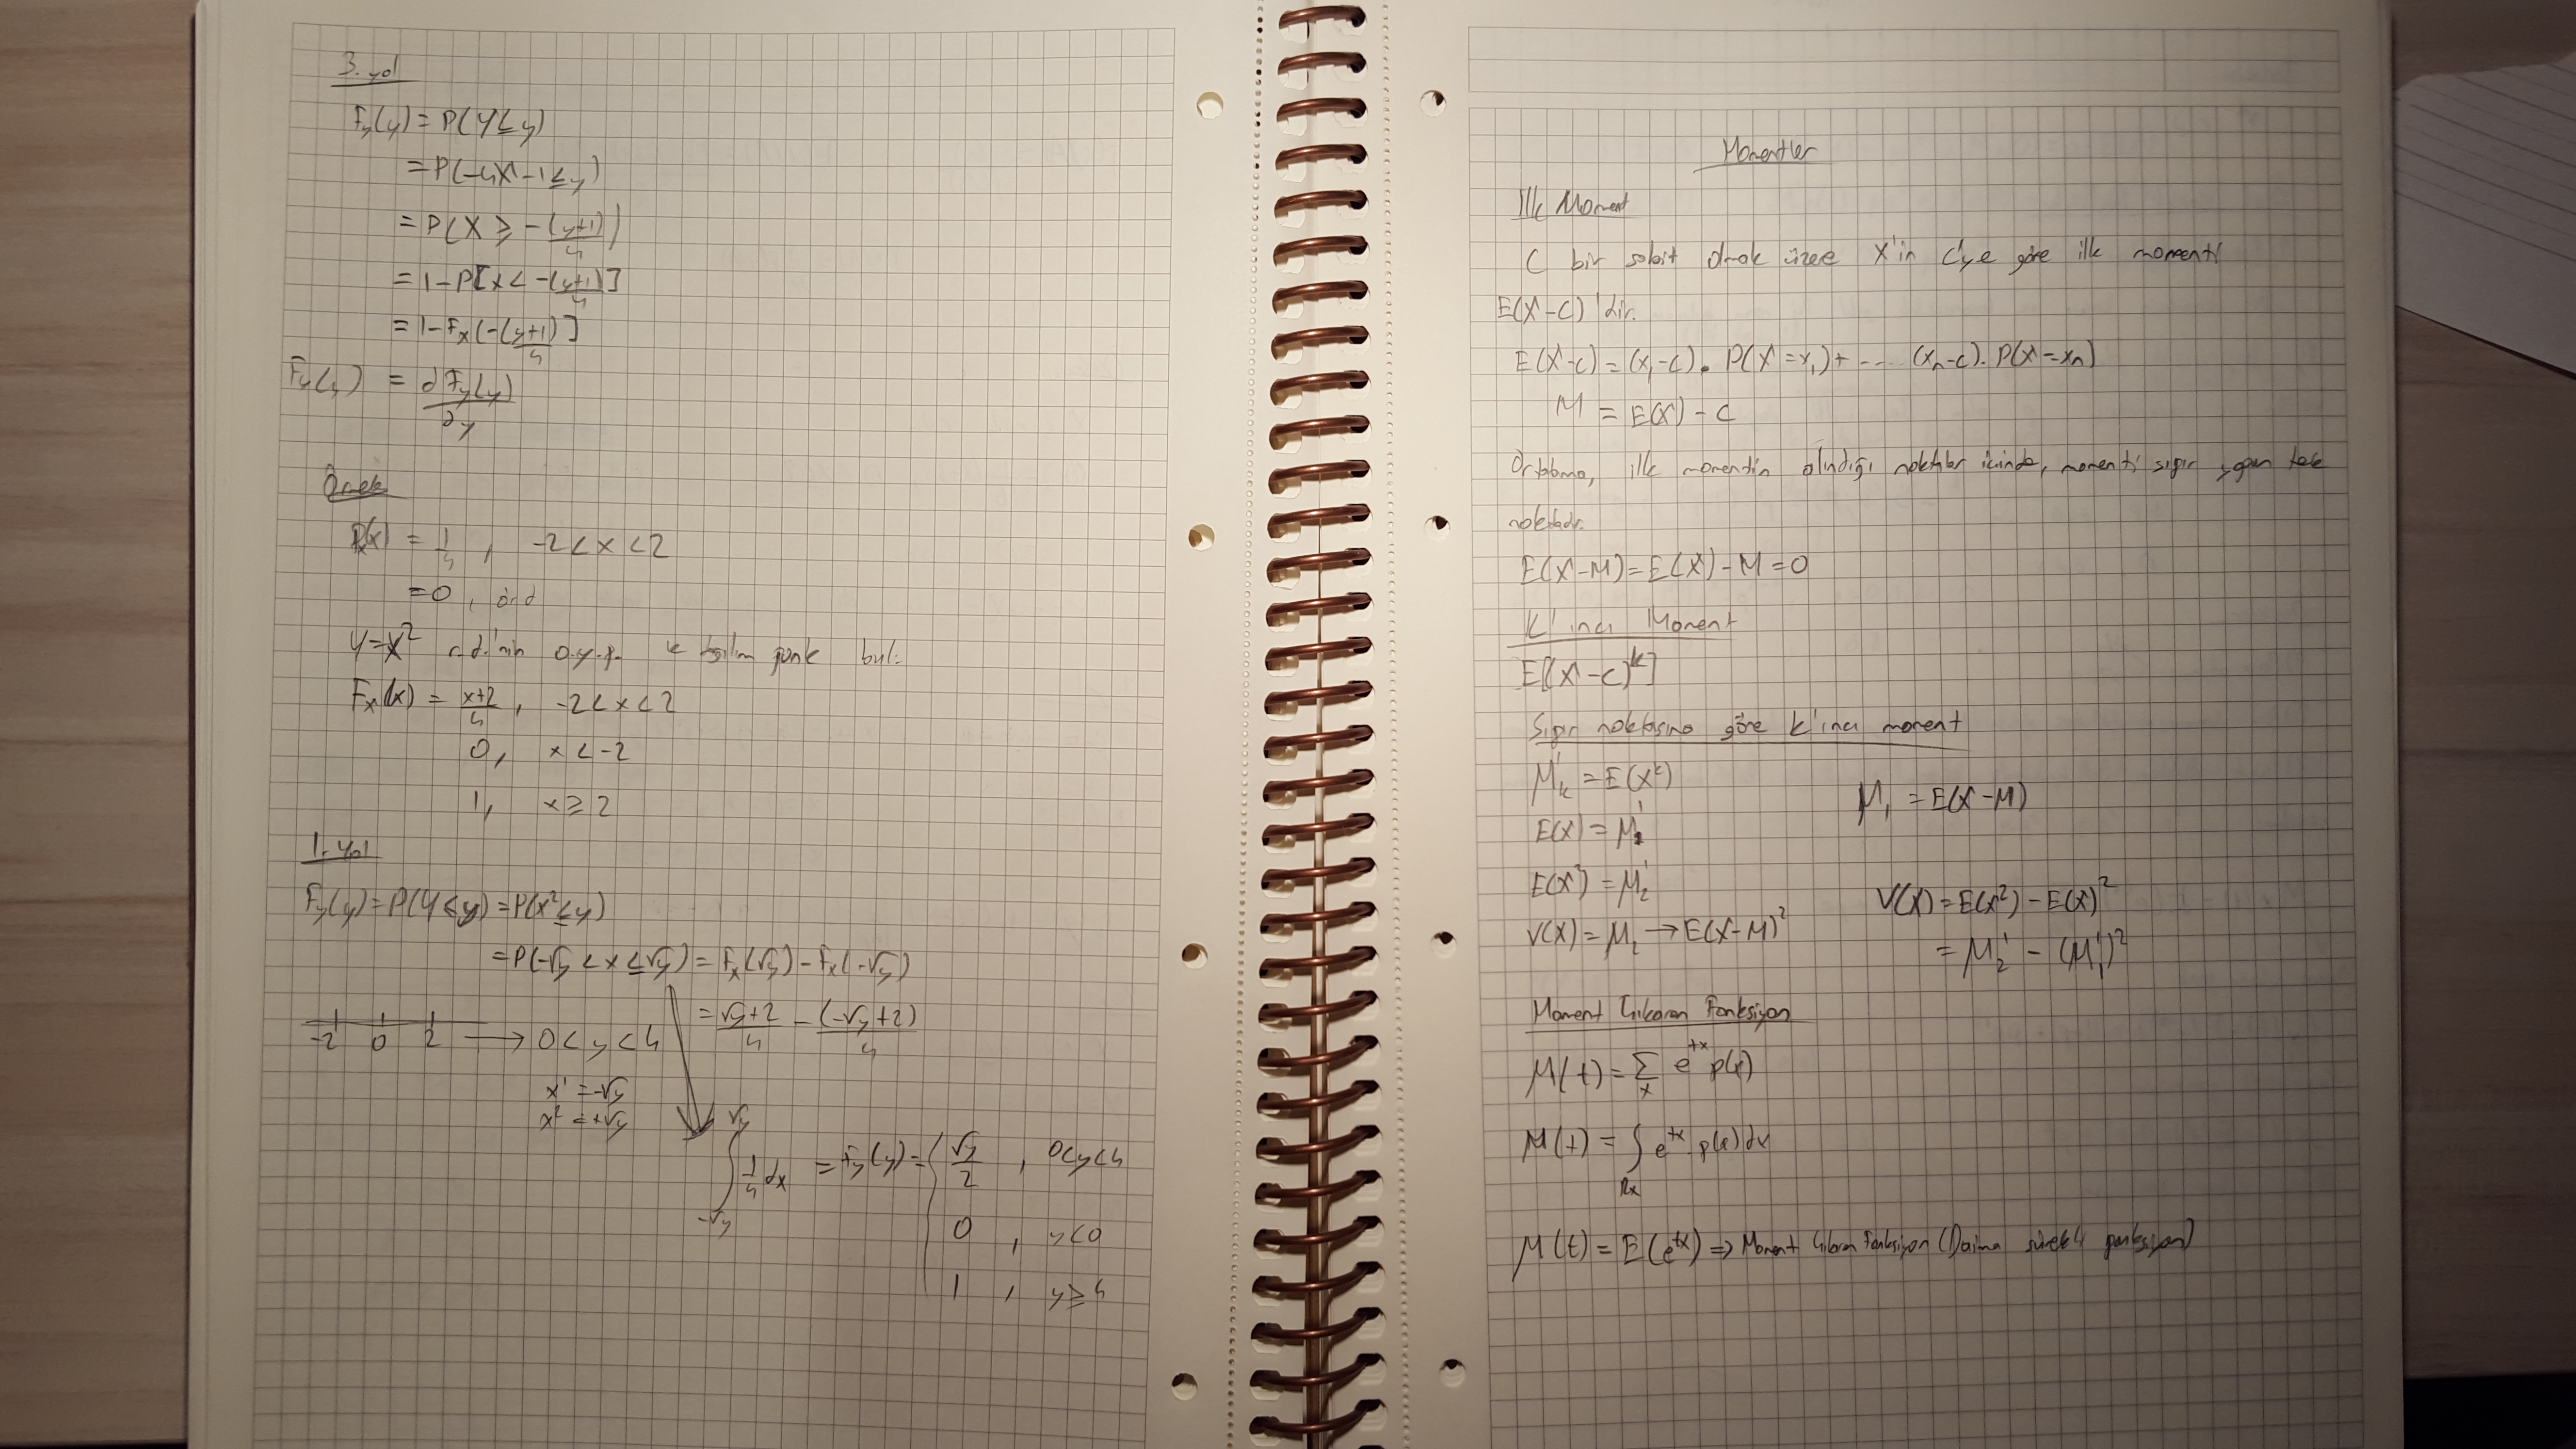 3. yol
Fy(y) = P(Y ≤ y)
= P(-4X-1 ≤ y)
= P(X ≥ -(y+1)/4)
= 1-P[X < -(y+1)/4]
= 1-Fx(-(y+1)/4]
Fy(y) = ∂Fy(y)/∂y
Örnek
Px(x) = 1/4 , -2<x<2
=0 , ö.r.d
Y=X² r.d.'nin o.y.f. ve dağılım fonk bul.
Fx(x) = x+2/4 , -2<x<2
0, x<-2
1, x≥2
1. yol
Fy(y)=P(Y≤y)=P(x²≤y)
=P(-√y<x≤√y) = Fx(√y)-Fx(-√y)
= √y+2/4 - (-√y+2)/4
-2 0 2 → 0<y<4
x¹ = -√y
x² = +√y
∫ -√y √y 1/4 dx = Fy(y) = { √y/2 , 0<y<4
0 , y<0
1 , y≥4
Momentler
İlk Moment
C bir sabit olmak üzere X'in C'ye göre ilk momenti
E(X-C)'dir.
E(X-c) = (x₁-c). P(X=x₁)+ .... (xₙ-c). P(X=xₙ)
M = E(X) - c
Ortalama, ilk momentin alındığı noktalar içinde, momenti sıfır yapan tek
noktadır.
E(X-M)=E(X)-M=0
K'ıncı Moment
E[(X-c)ᵏ]
Sıfır noktasına göre k'ıncı moment
M'ₖ = E(Xᵏ)
M₁ = E(X-M)
E(X) = M'₁
E(X²) = M'₂
V(X) = M₂ → E(X-M)²
V(X) = E(X²) - E(X)²
= M'₂ - (M'₁)²
Moment Çıkaran Fonksiyon
M(t) = Σₓ eᵗˣ p(x)
M(t) = ∫Rx eᵗˣ . p(x)dx
M(t) = E(eᵗˣ) ⇒ Moment Çıkaran Fonksiyon (Daima sürekli fonksiyon)